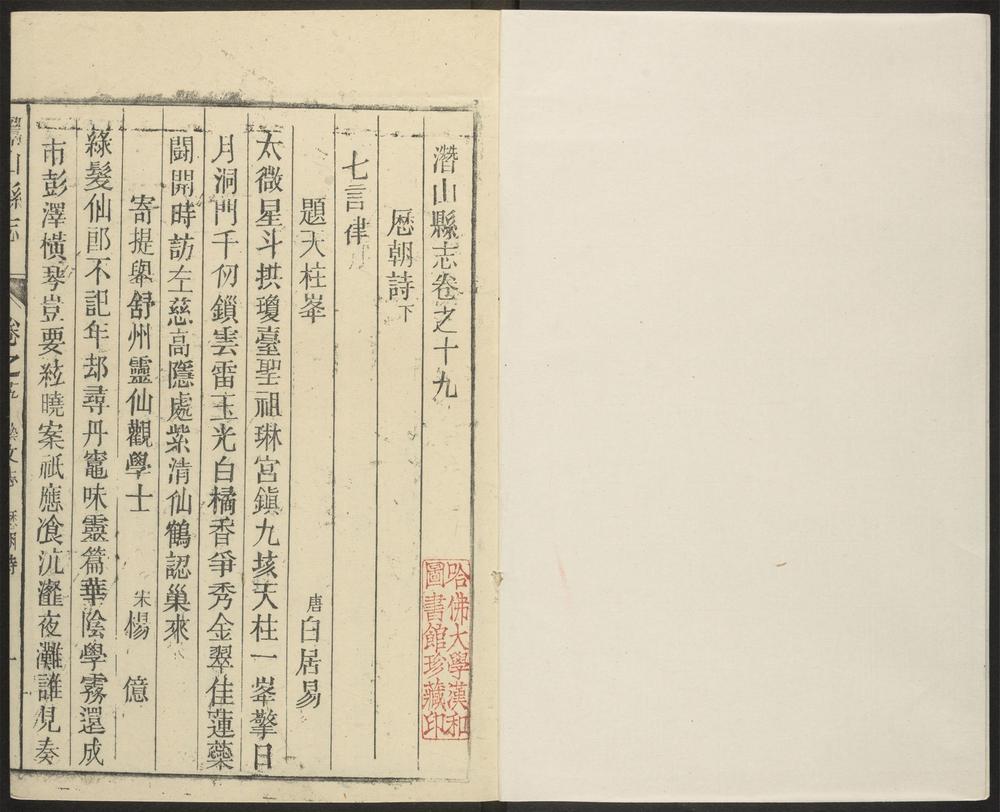 潛山縣志卷之十九
歴朝詩下
七言律
題天柱峯 唐白居易
太微星斗拱瓊臺聖祖琳宮鎮九垓天柱一峯擎日
月洞門千仞鎖雲雷玉光白橘香爭秀金翠佳蓮蘂
鬪開時訪左慈高隱處紫清仙鶴認巢來
寄提舉舒州靈仙觀學士 宋楊億
綠髮仙郎不記年却尋丹竈味靈篇華陰學霧還成
市彭澤橫琴豈要絃曉案祇應飡沆瀣夜灘誰見奏
山縣志 卷之 藝文志 歷朝詩 一
哈佛大學漢和
圖書館珍藏印